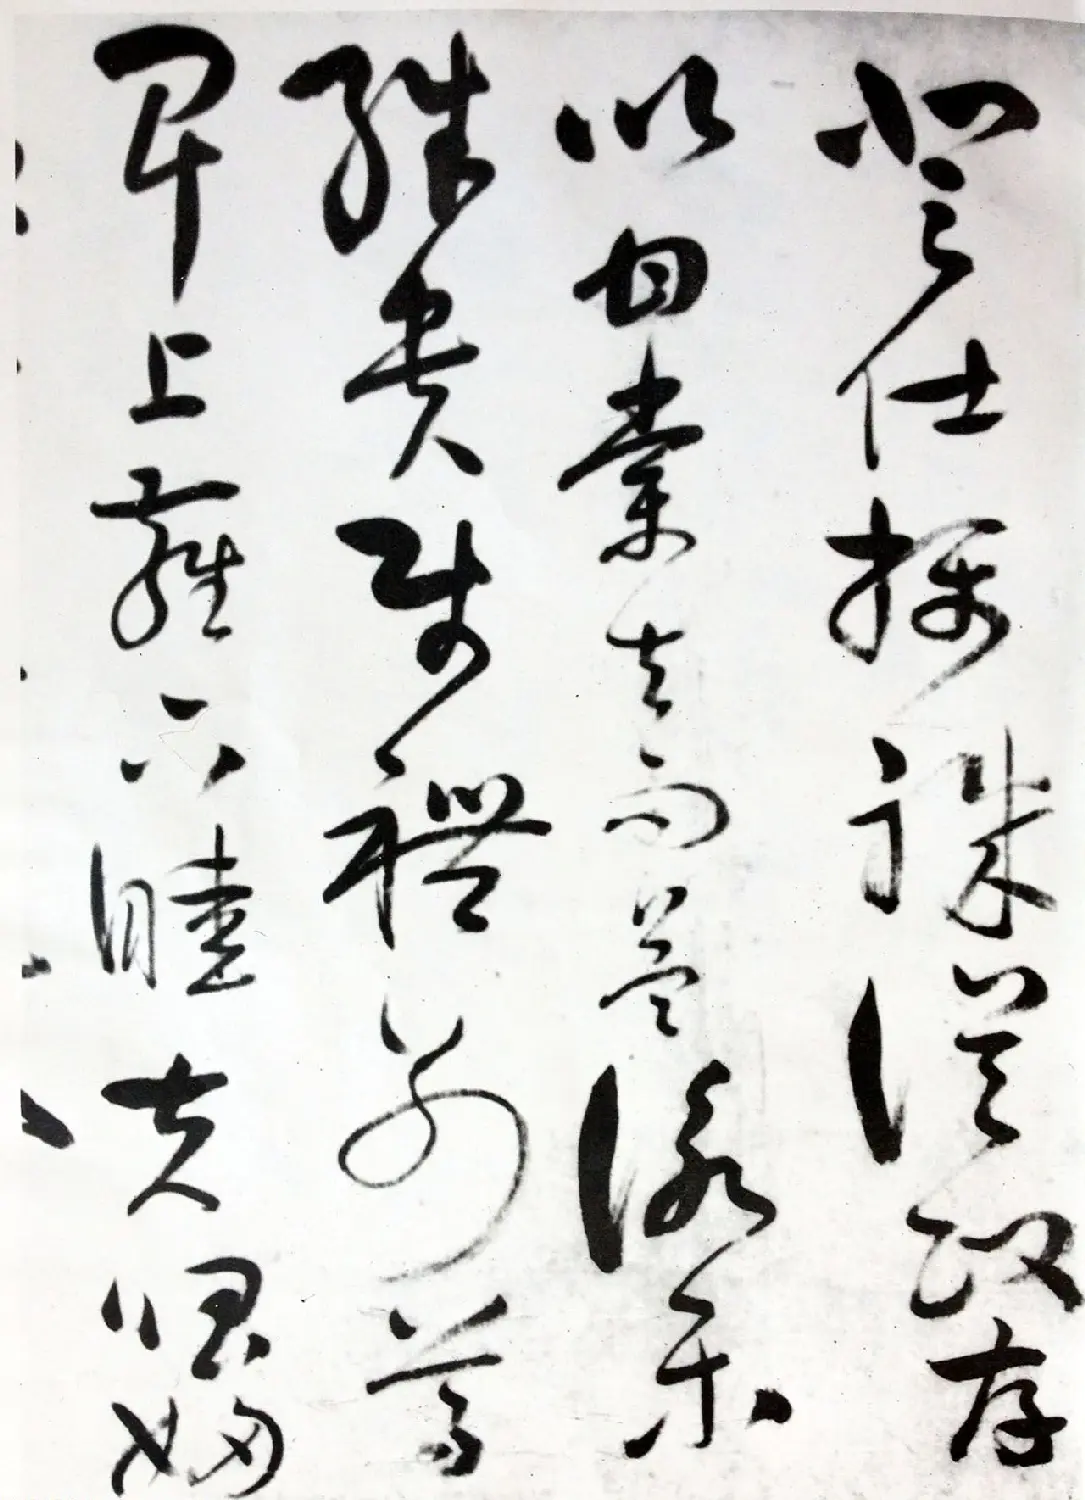 登仕攝職從政存
以甘棠去而益詠樂
殊貴賤禮別尊
卑上和下睦夫唱婦